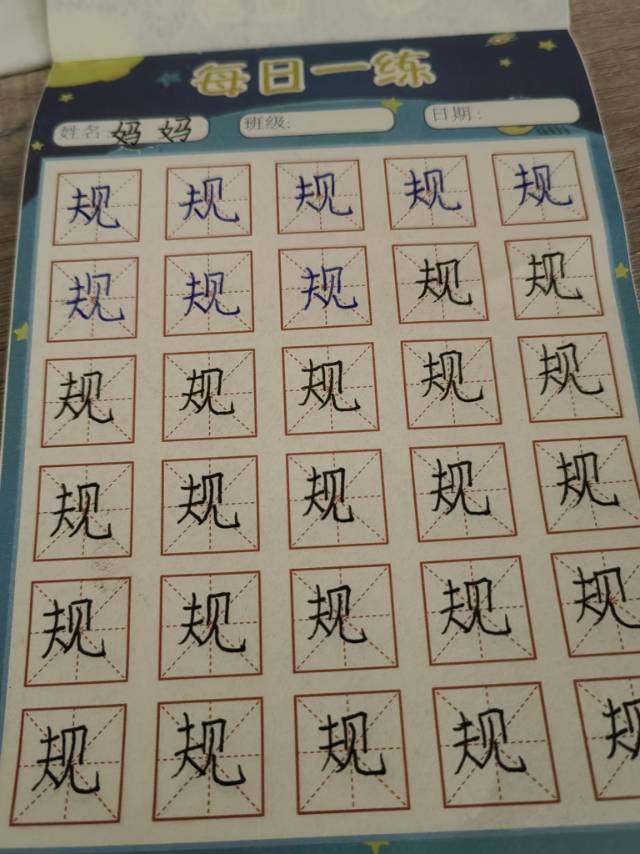 每日一练
姓名：妈妈 班级： 日期：
规 规 规 规 规
规 规 规 规 规
规 规 规 规 规
规 规 规 规 规
规 规 规 规 规
规 规 规 规 规